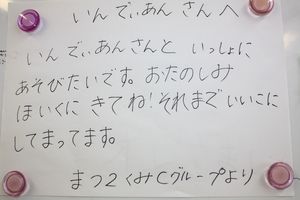 いんでぃあんさんへ
いんでぃあんさんと いっしょに
あそびたいです。おたのしみ
ほいくに きてね!それまでいいこに
してまってます。
まつ2くみCグループより